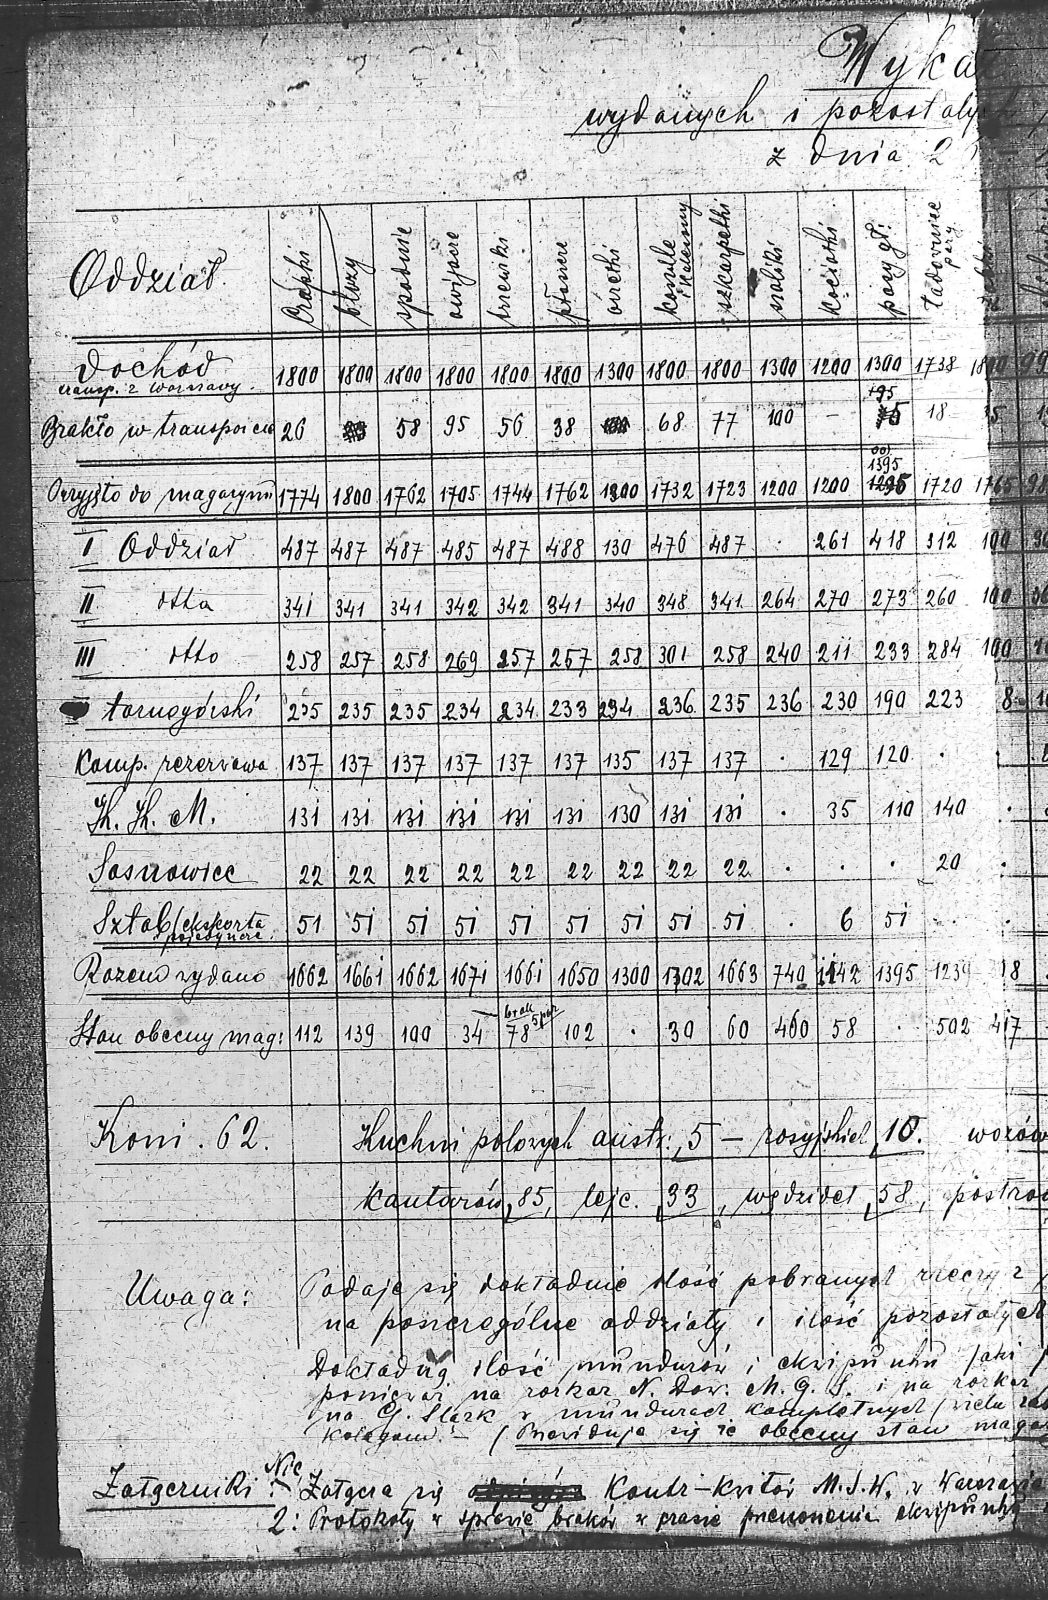 Wykaz
wydanych i pozostałych
z dnia 2
Oddział czapki bluzy spodnie owijacze trzewiki płaszcze koszule i kalesony szkarpetki szaliki kociołki pasy gł: ładownice pary
Dochód 1800 1800 1800 1800 1800 1800 1300 1800 1800 1300 1200 1300 1738 1800 99
transp. z Warszawy.
+95
Brakło w transporcie 26 58 95 56 38 68 77 100 – 75 18 35
1395
Przyjęto do magazynu 1774 1800 1762 1705 1744 1762 1300 1732 1723 1200 1200 1295 1720 1765 98
I Oddział 487 487 487 485 487 488 130 476 487 . 261 418 312 100
II otta 341 341 341 342 342 341 340 348 341 264 270 273 260 100
III otto 258 257 258 269 257 257 258 301 258 240 211 233 284 100
tarnogórski 235 235 235 234 234 233 234 236 235 236 230 190 223 8
Komp. rezerwowa 137 137 137 137 137 137 135 137 137 . 129 120 . .
K. K. M. 131 131 131 131 131 131 130 131 131 . 35 110 140 .
Sosnowiec 22 22 22 22 22 22 22 22 22 . . . 20 .
Sztab/ekskorta 51 51 51 51 51 51 51 51 51 . 6 51 . .
Razem wydano 1662 1661 1662 1671 1661 1650 1300 1702 1663 740 1142 1395 1239 18
brak 5 par
Stan obecny mag: 112 139 100 34 78 102 . 30 60 460 58 . 502 417
Koni . 62. Kuchni polowych austr: 5 – rosyjskich 10. wozów
kantarów 85, lejc. 33, wędzideł 58, postro
Uwaga: Podaje się dokładnie ilość pobranych rzeczy z
na poszczególne oddziały i ilość pozostałych
Dokładną ilość mundurów i ekwipunku jaki
ponieważ na rozkaz N. Dow. M. G. S. i na rozkaz
na G. Śląsk w mundurach kompletnych / wielu
kolegom. – / Przewiduje się że obecny stan maga
Nic
Załączniki : 1/ Załącza się Kontr-kwitów M.S.W. w Warszawie
2: Protokoły w sprawie braków w czasie przenoszenia ekwipunku